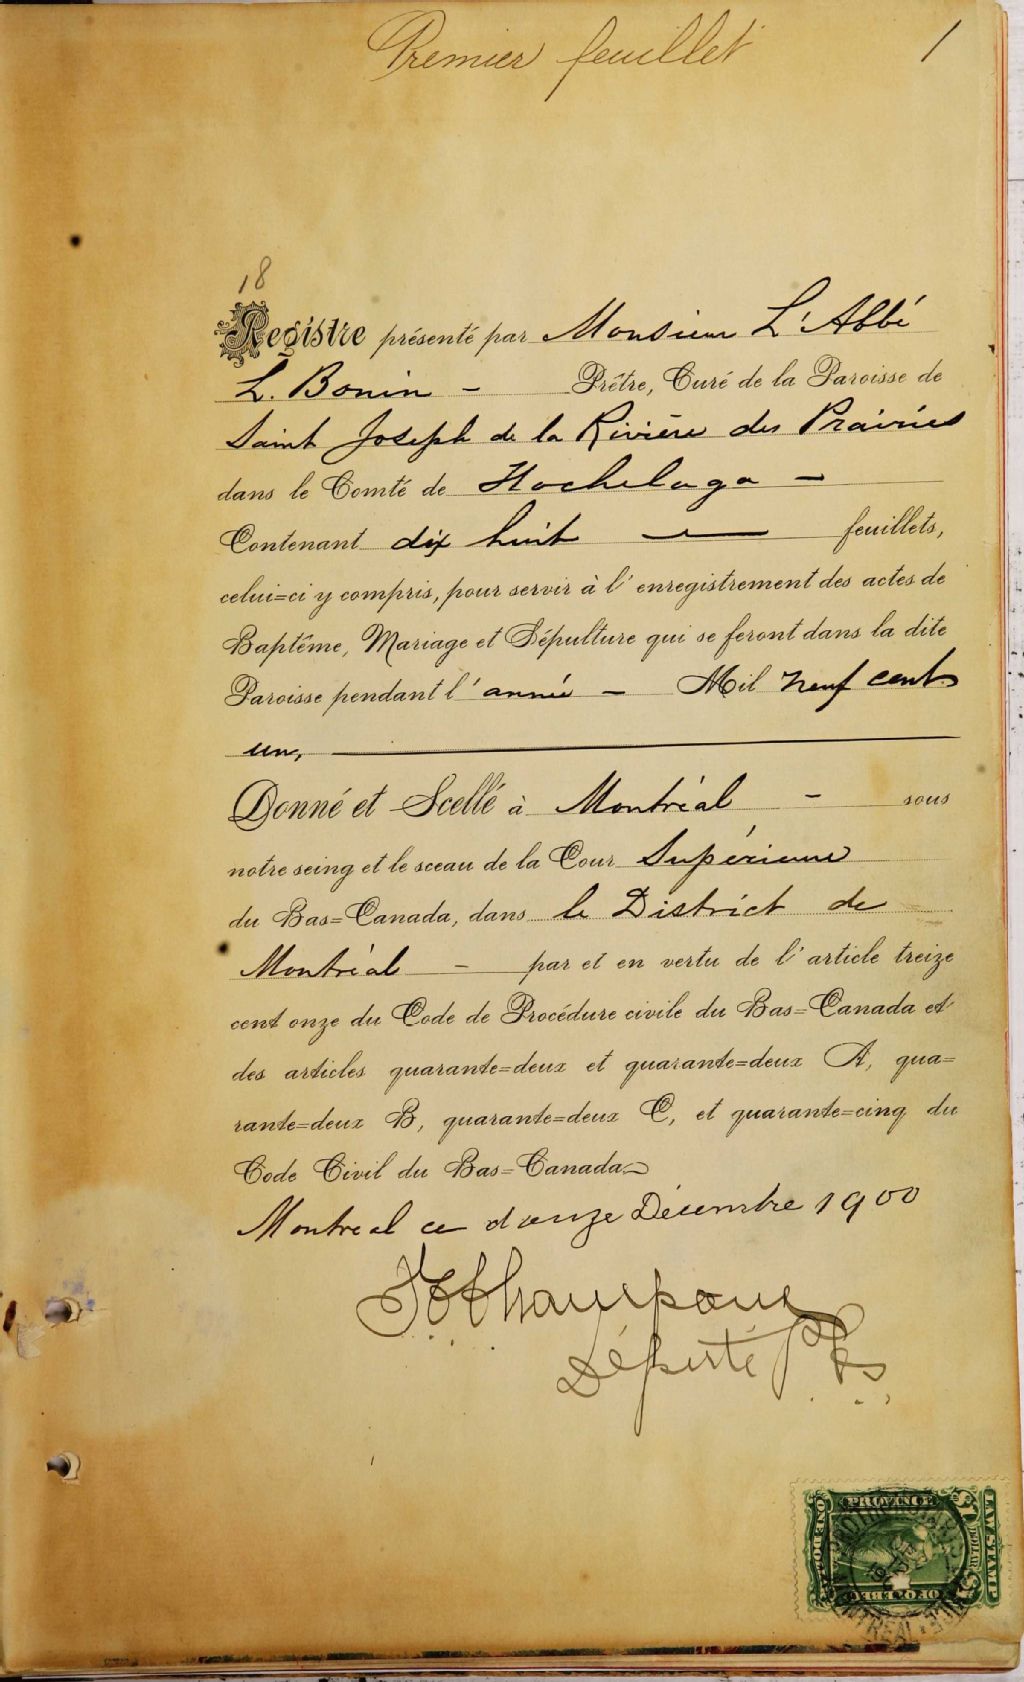 Premier feuillet 1
18
Registre présenté par Monsieur L'Abbé
L. Bonin - Prêtre, Curé de la Paroisse de
Saint Joseph de la Rivière des Prairies
dans le Comté de Hochelaga -
Contenant dix huit — feuillets,
celui=ci y compris, pour servir à l'enregistrement des actes de
Baptême, Mariage et Sépulture qui se feront dans la dite
Paroisse pendant l'année - Mil neuf cent
un,
Donné et Scellé à Montréal - sous
notre seing et le sceau de la Cour Supérieure
du Bas=Canada, dans le District de
Montréal - par et en vertu de l'article treize
cent onze du Code de Procédure civile du Bas=Canada et
des articles quarante=deux et quarante=deux A, qua=
rante=deux B, quarante=deux C, et quarante=cinq du
Code Civil du Bas=Canada
Montreal ce douze Décembre 1900
Député P
PROVINCE
OF QUEBEC
LAW STAMP
ONE DOLLAR
$1
DOLLAR
$1
MONTREAL